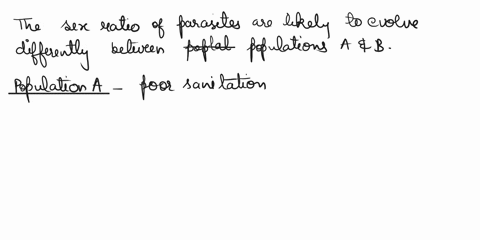 The sex ratio of parasites are likely to evolve
differently between populations A & B.
Population A - poor sanitation